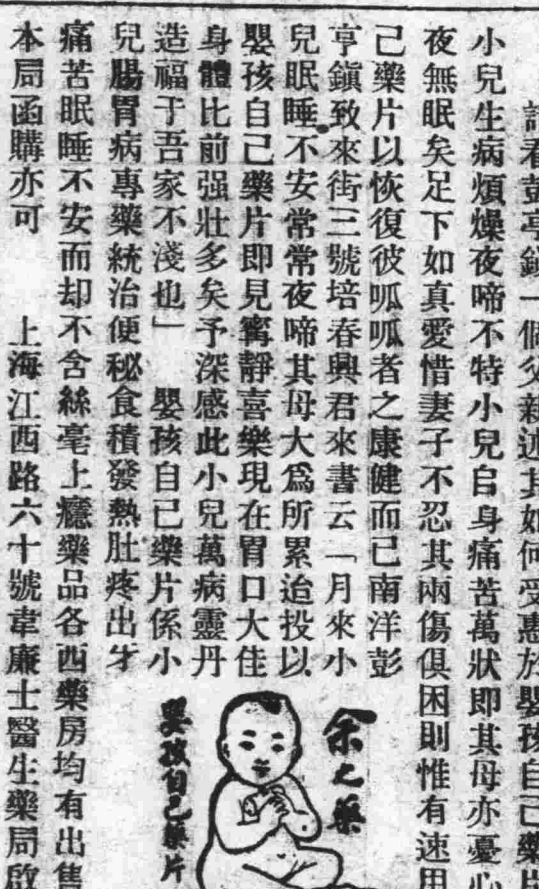 請看彭亨鎮一個父親述其如何受惠於嬰孩自己藥片
小兒生病煩燥夜啼不特小兒自身痛苦萬狀即其母亦憂心
夜無眠矣足下如真愛惜妻子不忍其兩傷俱困則惟有速用
己藥片以恢復彼呱呱者之康健而已南洋彭
亨鎭致來街三號培春興君來書云「一月來小
兒眠睡不安常常夜啼其母大爲所累迨投以
嬰孩自己藥片即見寗靜喜樂現在胃口大佳
身體比前强壯多矣予深感此小兒萬病靈丹
造福于吾家不淺也」　嬰孩自己藥片係小
兒腸胃病專藥統治便秘食積發熱肚疼出牙
痛苦眠睡不安而却不含絲毫上癮藥品各西藥房均有出售
本局函購亦可　上海江西路六十號韋廉士醫生藥局啟
余之藥
嬰孩自己藥片